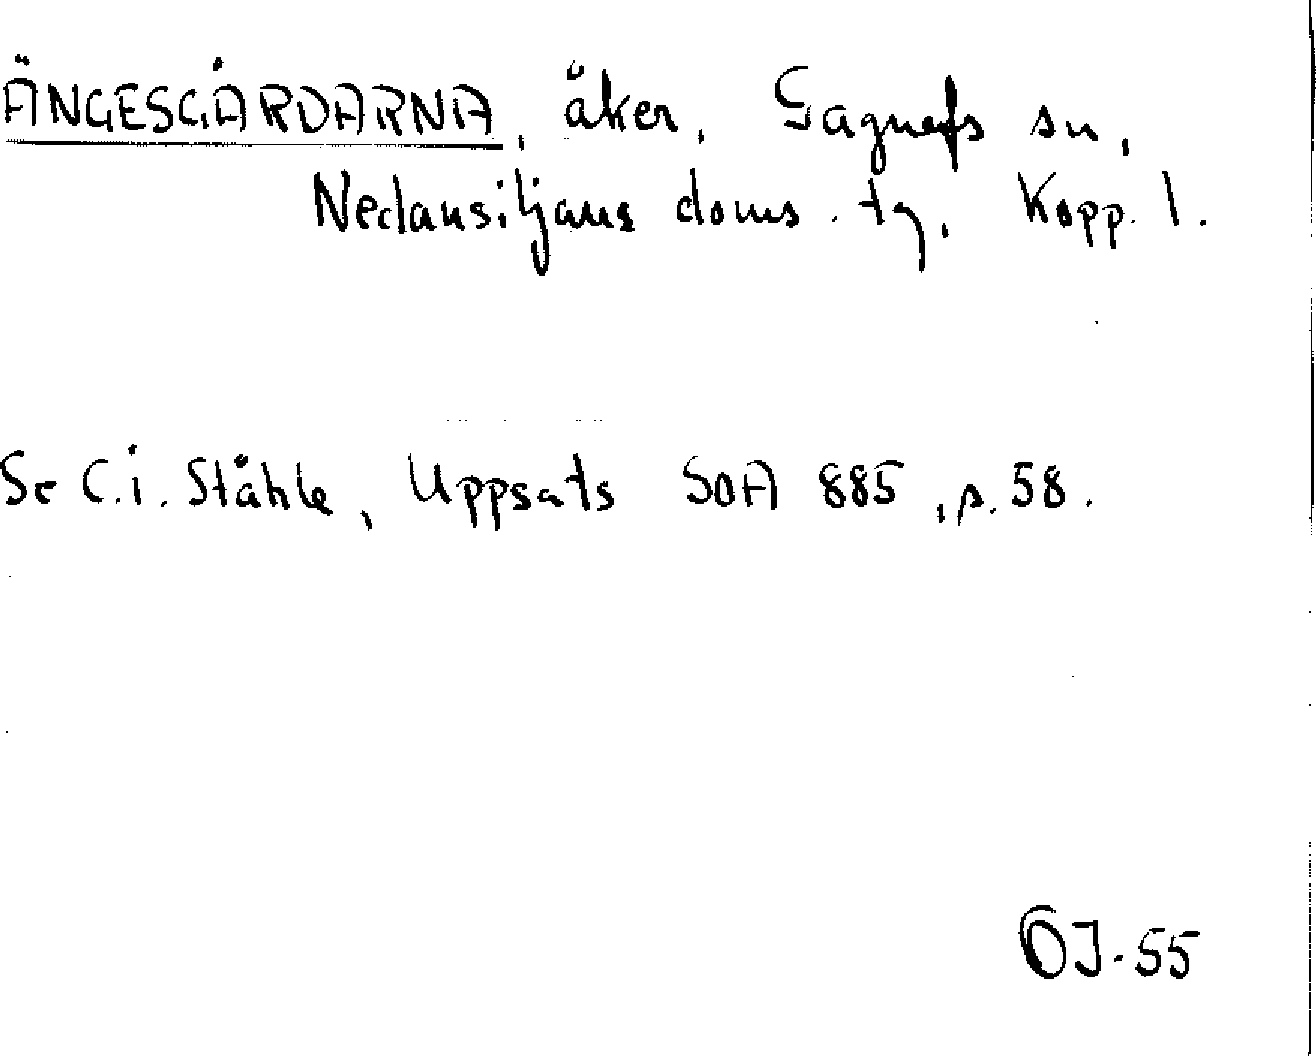 ÄNGESGÅRDARNA, åker, Gagnefs sn,
Nedansiljans doms. tg, Kopp. l.
Se C.i. Ståhle, Uppsats SOA 885, s. 58.
OJ-55